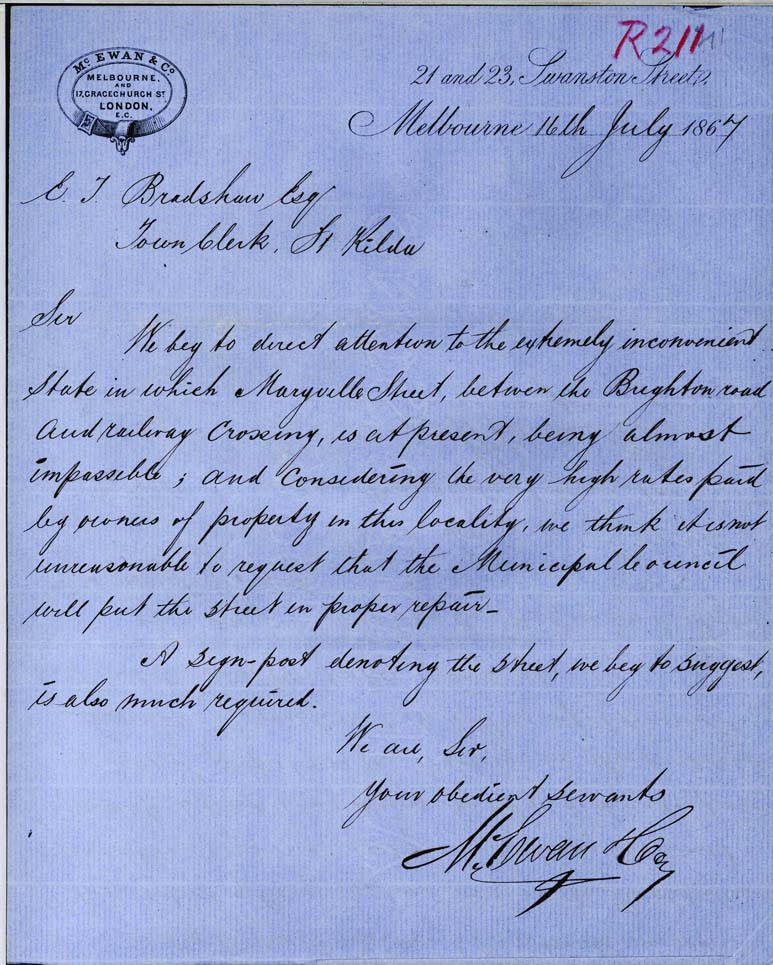 R211
Mc EWAN & Co
MELBOURNE.
AND
17, GRACECHURCH ST
LONDON,
E.C.
21 and 23, Swanston Street,
Melbourne 16th July 1867
E. T. Bradshaw Esq
Town Clerk, St Kilda
Sir
We beg to direct attention to the extremely inconvenient
State in which Maryville Street, between the Brighton road
and railway Crossing, is at present, being almost
impassible; and Considering the very high rates paid
by owners of property in this locality, we think it is not
unreasonable to request that the Municipal Council
will put the street in proper repair_
A sign-post denoting the street, we beg to suggest,
is also much required.
We are, Sir,
Your obedient servants
McEwan & Co